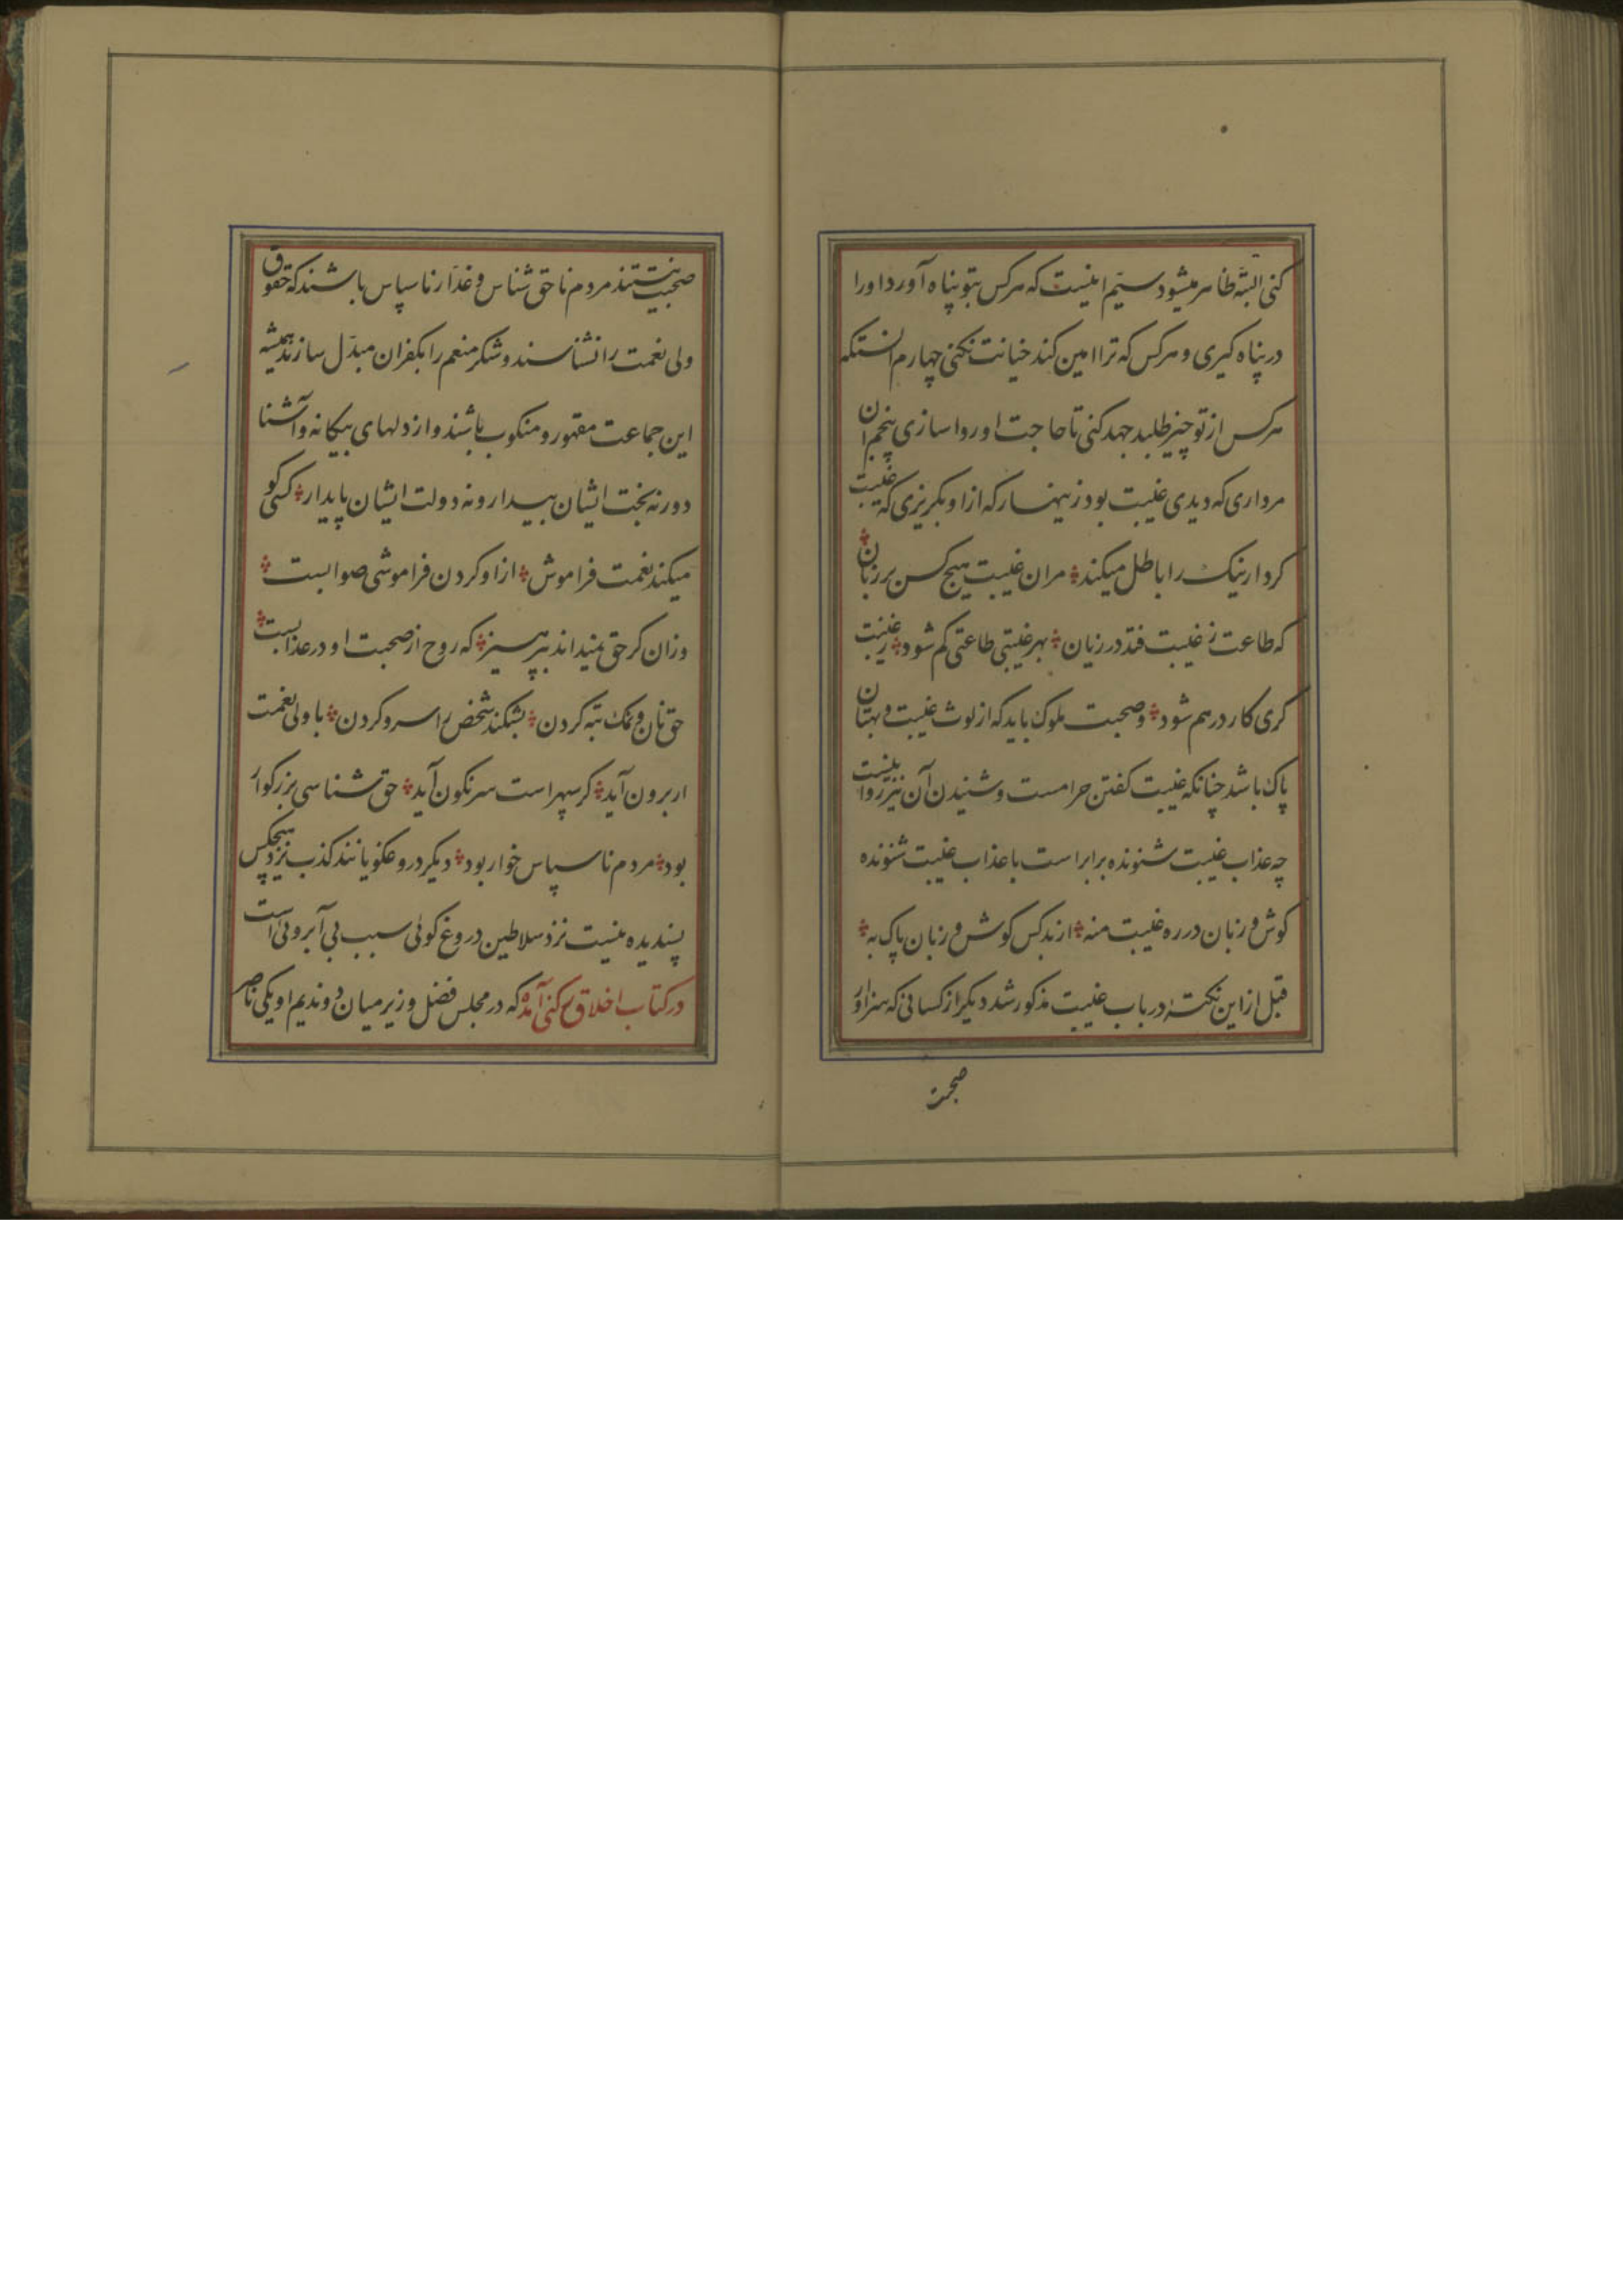 کنی البته ظاهر میشود سیّم اینست که هرکس بتو پناه آورد او را
در پناه گیری و هرکس که ترا امین کند خیانت نکنی چهارم آنستکه
هرکس از تو چیز طلبد جهد کنی تا حاجت او روا سازی پنجم آن
مرداری که دیدی غیبت بود زینهار که از او بگریزی که غیبت
کردار نیک را باطل میکند مران غیبت هیچ کس بر زبان
که طاعت ز غیبت فتد در زیان بهر غیبتی طاعتی کم شود ز غیبت
گری کار درهم شود و صحبت ملوک باید که از لوث غیبت و بهتان
پاک باشد چنانکه غیبت گفتن حرامست و شنیدن آن نیز روا نیست
چه عذاب غیبت شنونده برابر است با عذاب غیبت شنونده
گوش و زبان در ره غیبت منه از بد کس گوش و زبان پاک به
قبل از این نکتهٔ در باب غیبت مذکور شد دیگر از کسانی که سزاوار
صحبت
صحبت نیستند مردم ناحق شناس و غدّار ناسپاس باشند که حقوق
ولی نعمت را نشناسند و شکر منعم را بکفران مبدّل سازند همیشه
این جماعت مقهور و منکوب باشند و از دلهای بیگانه و آشنا
دور نه بخت ایشان بیدار و نه دولت ایشان پایدار کسی کو
میکند نعمت فراموش از او کردن فراموشی صوابست
وزان کز حق نمیداند بپرهیز که روح از صحبت او در عذابست
حق نان و نمک تبه کردن بشکند شخص را سر و گردن با ولی نعمت
ار برون آید گر سپهر است سرنگون آید حق شناسی بزرگوار
بود مردم ناسپاس خوار بود دیگر دروغگویانند کذب نزد هیچکس
پسندیده نیست نزد سلاطین دروغ گوئی سبب بی آبروئی است
در کتاب اخلاق رکنی آمده که در مجلس فضل وزیر میان دو ندیم او یکی ناصر